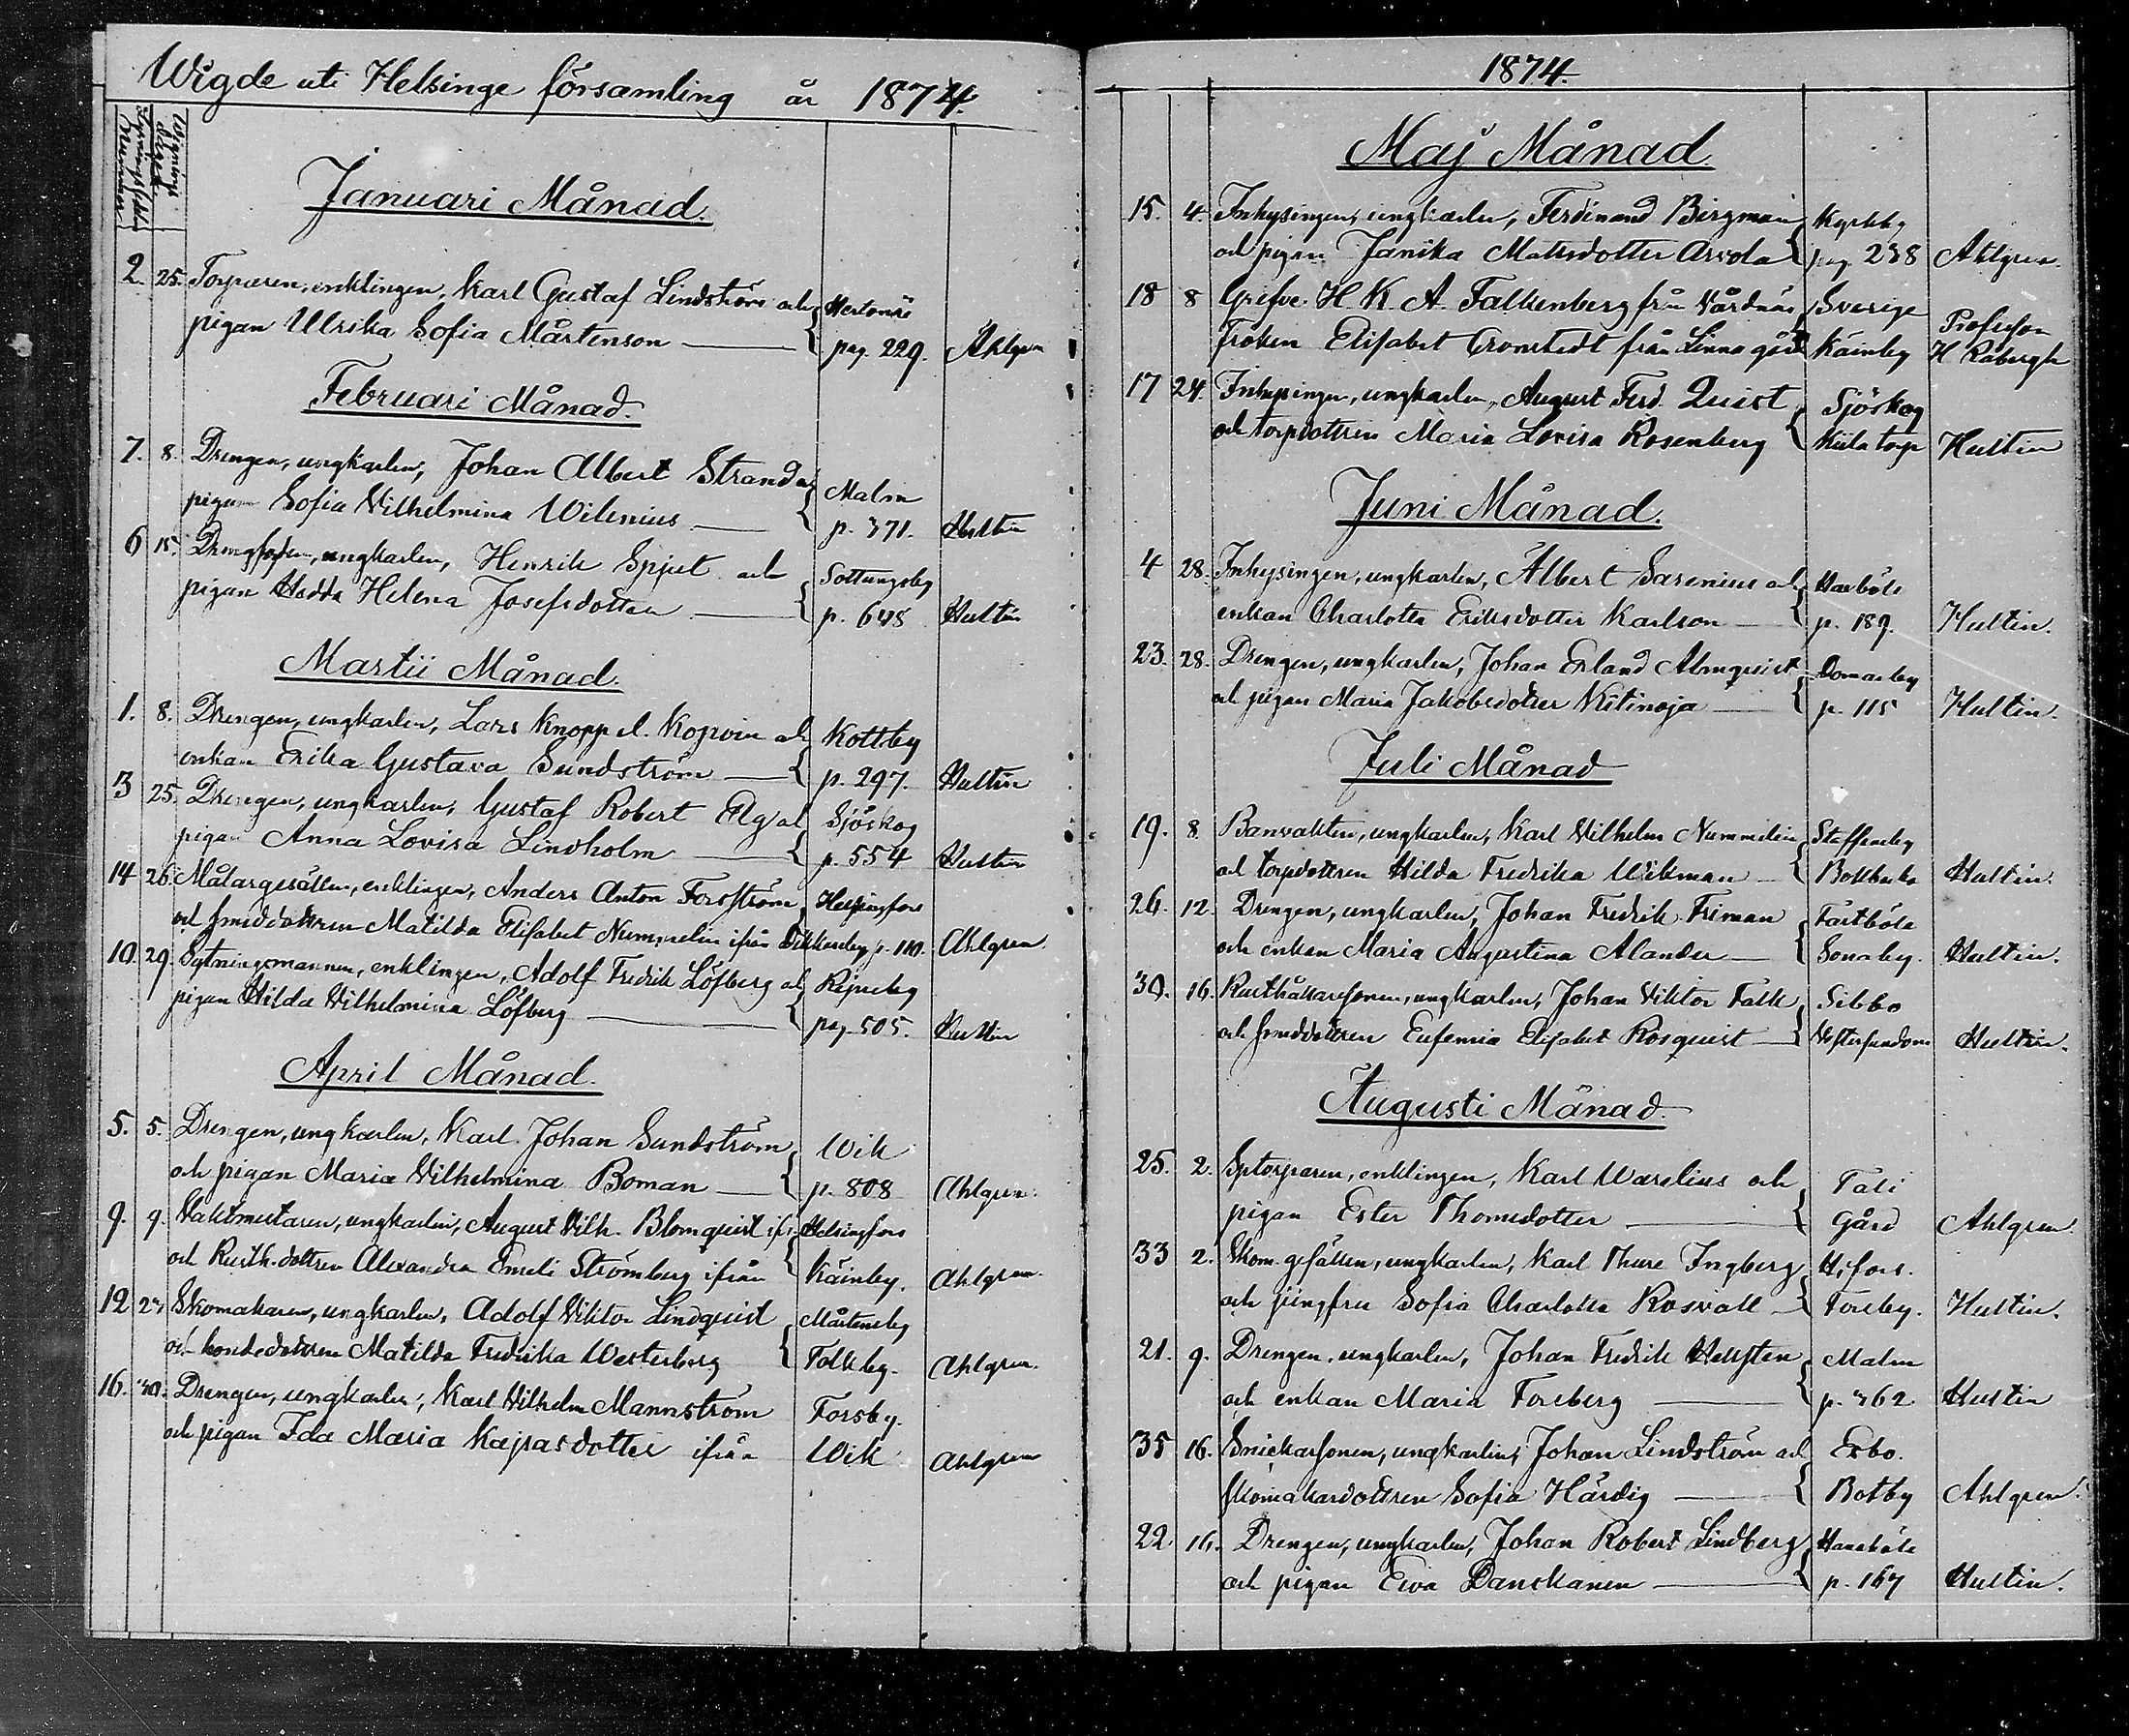 Wigde uti Helsinge församling år 1874.
Wignings dagen
Lysningsboks Nummer
Januari Månad.
2. 25. Torparen, enklingen, Karl Gustaf Lindström och Hertonäs
pigan Ulrika Sofia Mårtenson — pag. 229. Ahlgren
Februari Månad.
7. 8. Drengen, ungkarlen, Johan Albert Strand och Malm
pigan Sofia Vilhelmina Wilenius — p. 371. Hultin
6 15. ungkarlen, Henrik Spjut och Sottungsby
pigan Hedda Helena Josefsdotter — p. 648 Hultin
Martii Månad.
1. 8. Drengen, ungkarlen, Lars Knopp el. Kopoin och Kottby
enkan Erika Gustava Sundström — p. 297. Hultin
3 25. Drengen, ungkarlen, Gustaf Robert Elg och Sjöskog
pigan Anna Lovisa Lindholm — p. 554 Hultin
14 26. Målargesällen, enklingen, Anders Anton Forsström Helsingfors
och smeddottren Matilda Elisabet Nummelin ifrån Dikkursby p. 110. Ahlgren
10. 29. Sytningsmannen, enklingen, Adolf Fredrik Löfberg och Ripuby
pigan Hilda Vilhelmina Löfberg — pag. 505. Hultin
April Månad.
5. 5. Drengen, ungkarlen, Karl Johan Sundström Wik
och pigan Maria Vilhelmina Boman — p. 808 Ahlgren.
9. 9. Vaktmästaren, ungkarlen, August Vilh. Blomquist ifr. Helsingfors
och Rusth. dottren Alexandra Emeli Strömberg ifrån Käinby. Ahlgren.
12 27 Skomakaren, ungkarlen, Adolf Viktor Lindquist Mårtensby
och bondedottren Matilda Fredrika Westerberg Tolkby. Ahlgren.
16. 30. Drengen, ungkarlen, Karl Vilhelm Mannström Forsby.
och pigan Ida Maria Kajsasdotter ifrån Wik Ahlgren
1874.
Maj Månad
15. 4. Inhysingen, ungkarlen, Ferdinand Birgman Kyrkby
och pigan Janika Mattsdotter Arvola pag 238 Ahlgren.
18 8 Grefve H. K. A. Falkenberg från Vårdnäs Sverige Professor
Fröken Elisabet Cronstedt från Linna gård Käinby H Råbergh
17 24. Inhysingen, ungkarlen, August Ferd. Quist Sjöskog
och torpdottren Maria Lovisa Rosenberg Kiila torp Hultin
Juni Månad.
4 28. Inhysingen, ungkarlen, Albert Sarenius och Haxböle
enkan Charlotta Eriksdotter Karlson — p. 189. Hultin.
23. 28. Drengen, ungkarlen, Johan Erland Almquist Domarby
och pigan Maria Jakobsdotter Kitinoja — p. 115 Hultin.
Juli Månad
19. 8. Banvakten, ungkarlen, Karl Vilhelm Nummelin Staffansby
och torpdottren Hilda Fredrika Wikman — Hultin.
26. 12. Drengen, ungkarlen, Johan Fredrik Friman Fastböle
och enkan Maria Augustina Alander — Sonaby. Hultin.
30. 16. Rusthållaresonen, ungkarlen, Johan Viktor Falk Sibbo
och smeddottren Eufemia Elisabet Rosquist — Vestersundom Hultin.
Augusti Månad
25. 2. Sptorparen, enklingen, Karl Warelius och Tali
pigan Ester Thomedotter — Gård Ahlgren.
33 2. Skom. gesällen, ungkarlen, Karl Thure Ingberg H. fors.
och jungfru Sofia Charlotta Rosvall — Forsby. Hultin.
21. 9. Drengen, ungkarlen, Johan Fredrik Hellsten Malm
och enkan Maria Forsberg — p. 362 Hultin
35 16. Snickarsonen, ungkarlen, Johan Lindström och Esbo.
skomakardottren Sofia Härdig — Botby Ahlgren.
22. 16. Drengen, ungkarlen, Johan Robert Lindberg Hanaböle
och pigan Eva Danskanen — p. 167 Hultin.